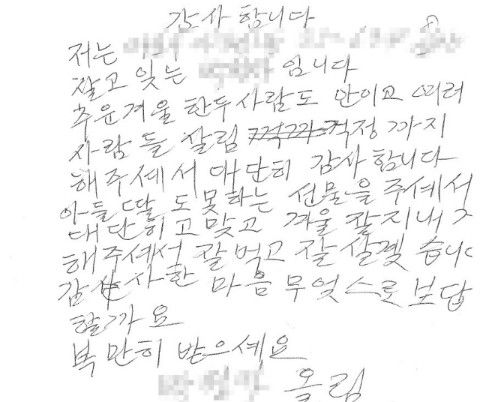 감사합니다
저는
잘고 있는 입니다
추운겨울 한두사람도 만이고 여러
사람들 살림 걱정까지
해주셰서 대단히 감사합니다
아들 딸도못하는 선물을 주셰서
대단히고맞고 겨울 잘지내
해주셰서 잘먹고 잘 살겠습니
감사한 마음무엇스로보답
할가요
복 만히 받으셰요
올림